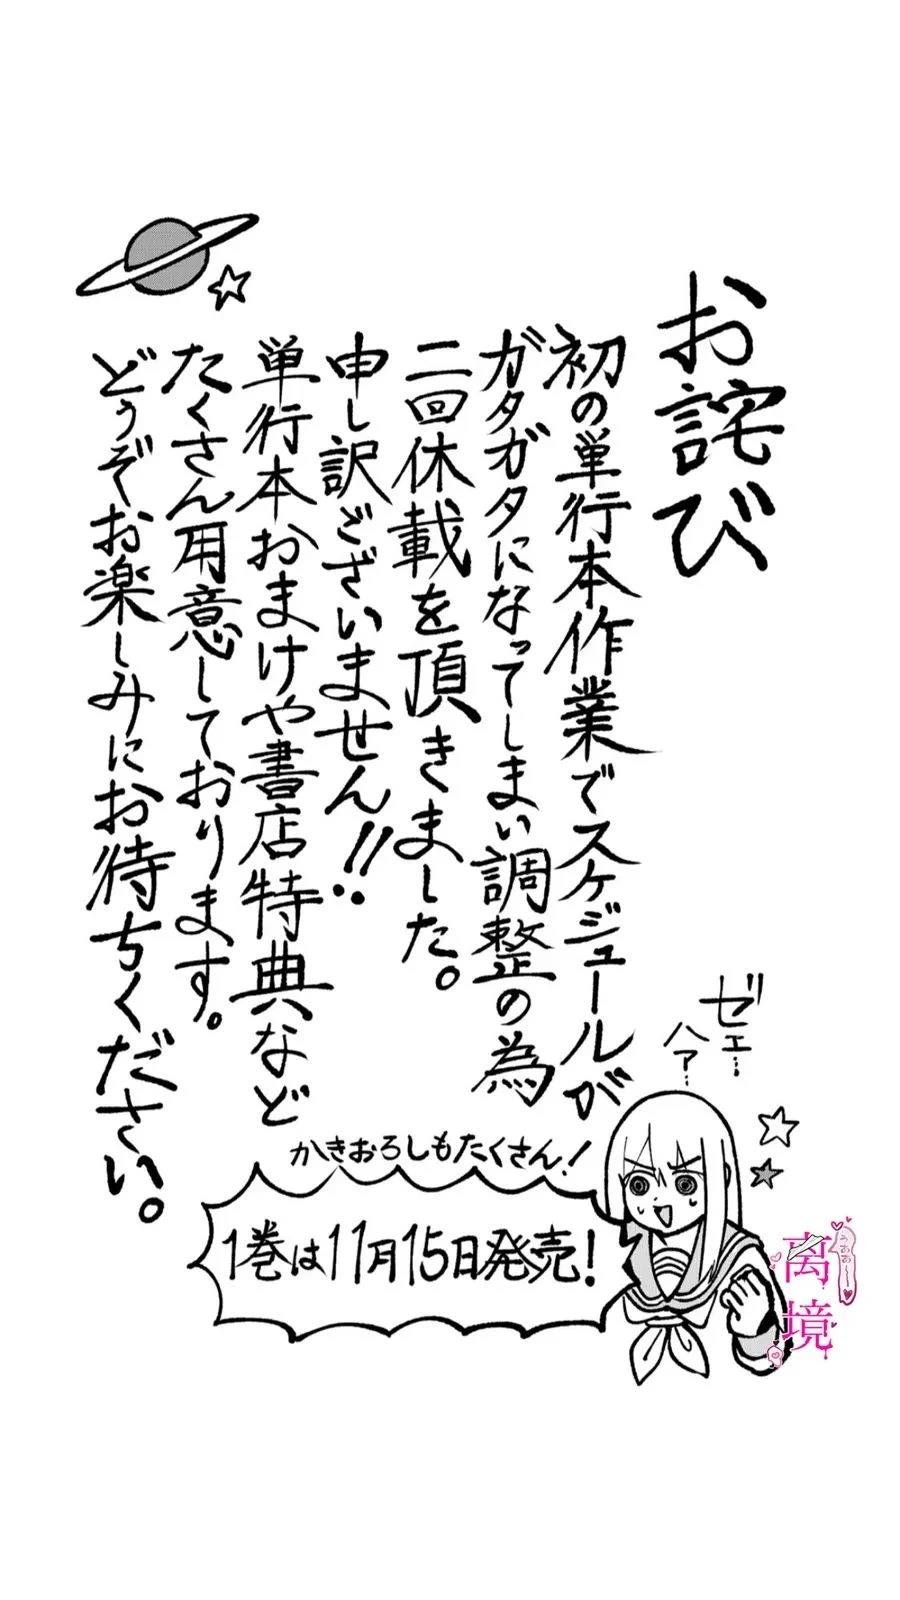 お詫び
初の単行本作業でスケジュールが
ガタガタになってしまい調整の為
二回休載を頂きました。
申し訳ございません!!
単行本おまけや書店特典など
たくさん用意しております。
どうぞお楽しみにお待ちください。
ゼェ…
ハァ…
かきおろしもたくさん!
1巻は11月15日発売!
うおお〜
离境